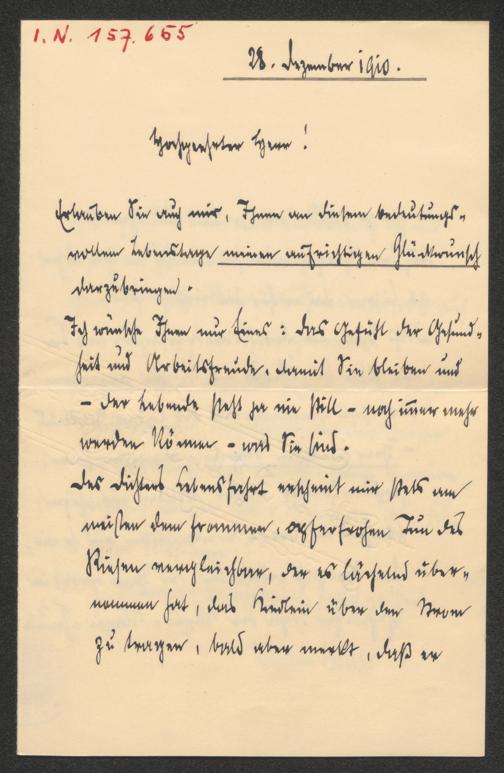 I.N. 157.655
28. Dezember 1910.
Hochgeehrter Herr!
Erlauben Sie auch mir, Ihnen an diesem bedeutungs-
vollen Lebenstage meinen aufrichtigen Glückwunsch
darzubringen.
Ich wünsche Ihnen nur Eines: das Gefühl der Gesund-
heit und Arbeitsfreude, damit Sie bleiben und
– der Lebende steht ja nie still – noch immer mehr
werden können – was Sie sind.
Des Dichters Lebensfahrt erscheint mir stets am
meisten dem frommen, opferfrohen Tun des
Riesen vergleichbar, der es lächelnd über-
nommen hat, das Kindlein über den Strom
zu tragen, bald aber merkt, daß er